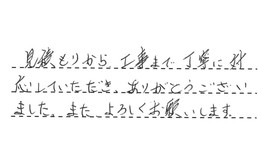 見積もりから、工事まで、丁寧に対
応していただき、ありがとうござい
ました。また、よろしくお願いします。